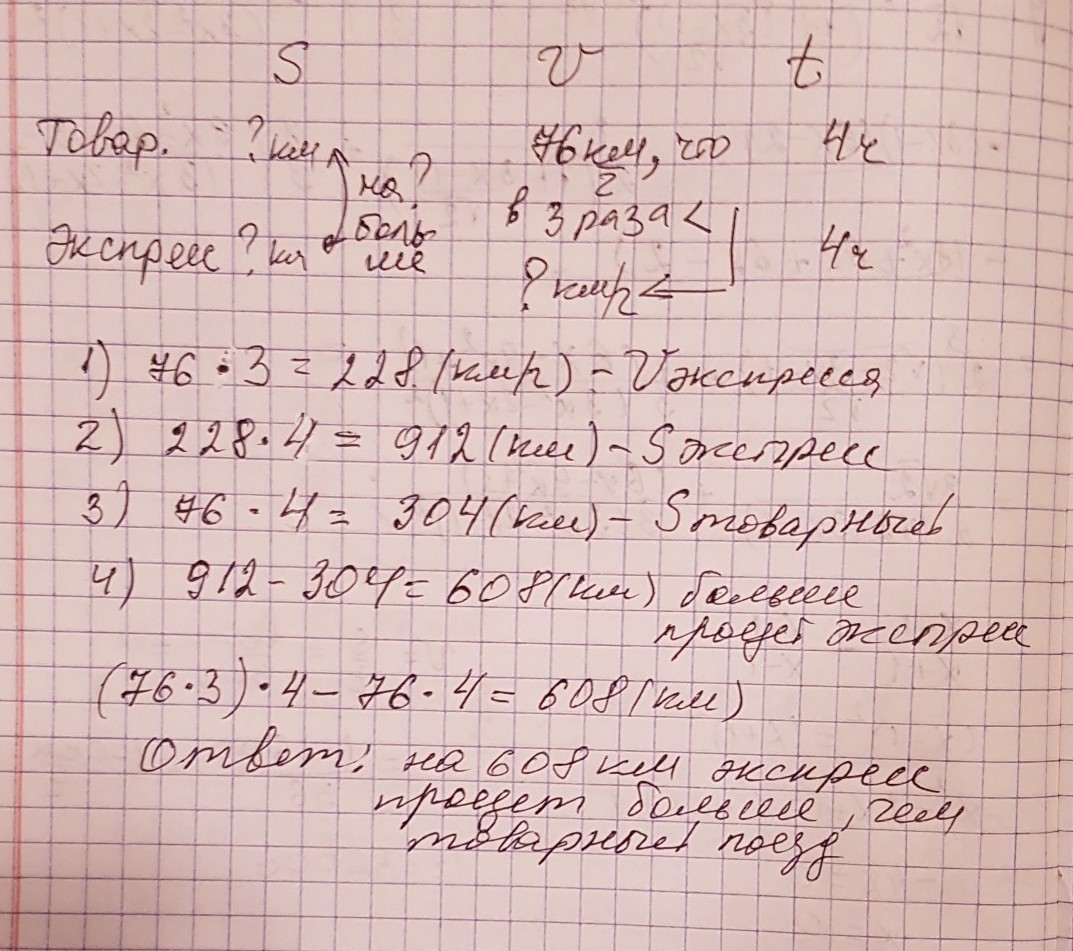 S v t
Товар. ?км на? 76км, что 4ч
ч
больше в 3 раза <
Экспресс ?км 4ч
?км/ч
1) 76 · 3 = 228 (км/ч) - V экспресса
2) 228 · 4 = 912 (км) - S экспресс
3) 76 · 4 = 304 (км) - S товарный
4) 912 - 304 = 608 (км) больше
проедет экспресс
(76 · 3) · 4 - 76 · 4 = 608 (км)
Ответ: на 608 км экспресс
проедет больше, чем
товарный поезд